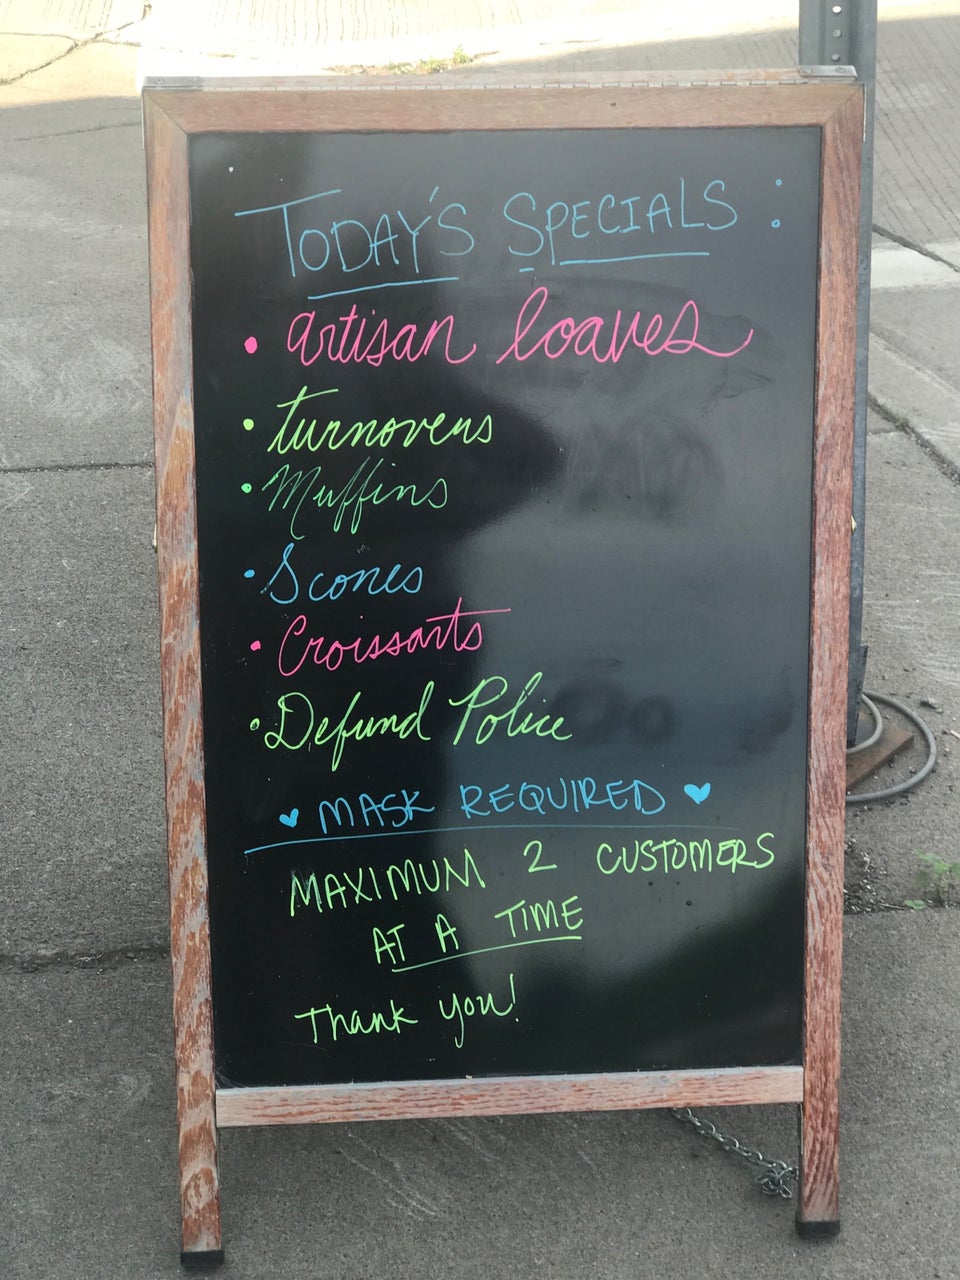 TODAY'S SPECIALS :
• artisan loaves
• turnovers
• Muffins
• Scones
• Croissants
• Defund Police
♥ MASK REQUIRED ♥
MAXIMUM 2 CUSTOMERS
AT A TIME
Thank you!